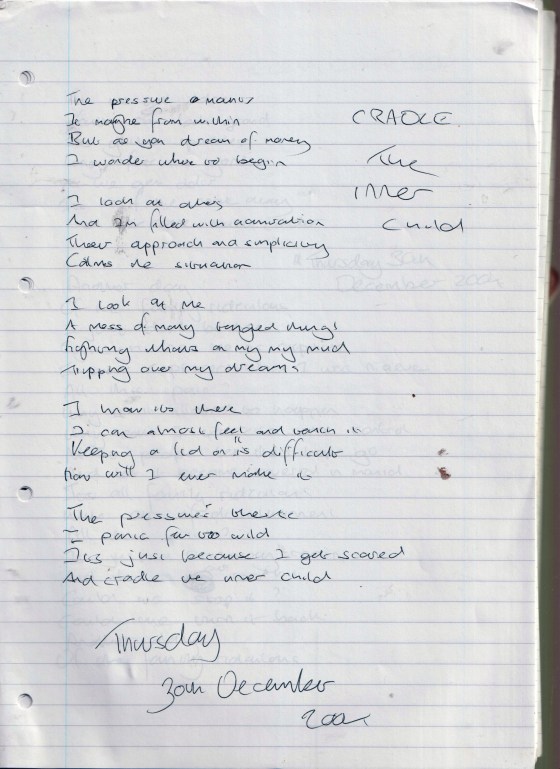 CRADLE
The
Inner
Child
The pressure
from within
But as you dream of money
I wonder where to begin
I look at others
And Im filled with admiration
Their approach and simplicity
Calms the situation
I look at me
A mess of many tangled things
Fighting whats on my my mind
Tripping over my dreams
I know its there
I can almost feel and touch it
Keeping a lid on it is difficult
How will I ever make it
The pressures there
I panic far too wild
Its just because I get scared
And cradle the inner child
Thursday
30th December
2004